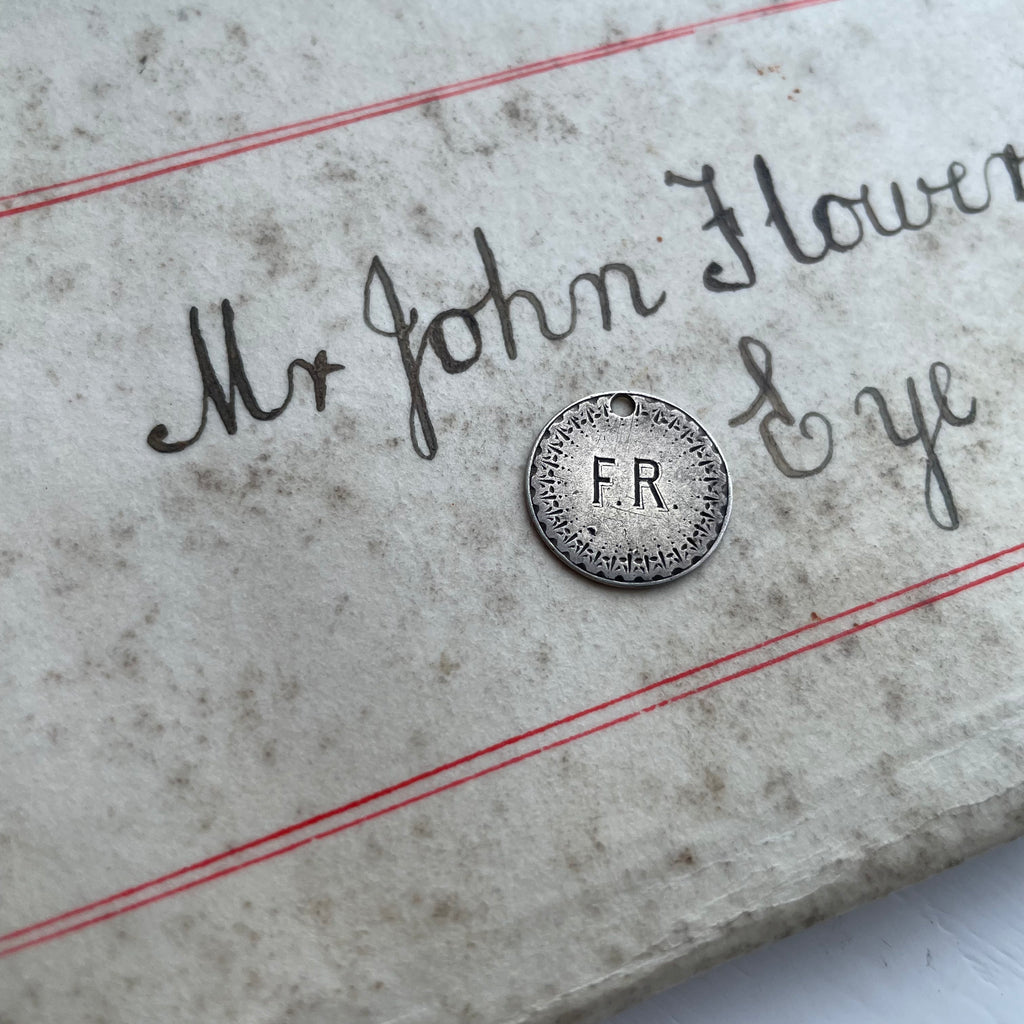 Mr John Flower
Eye
F.R.